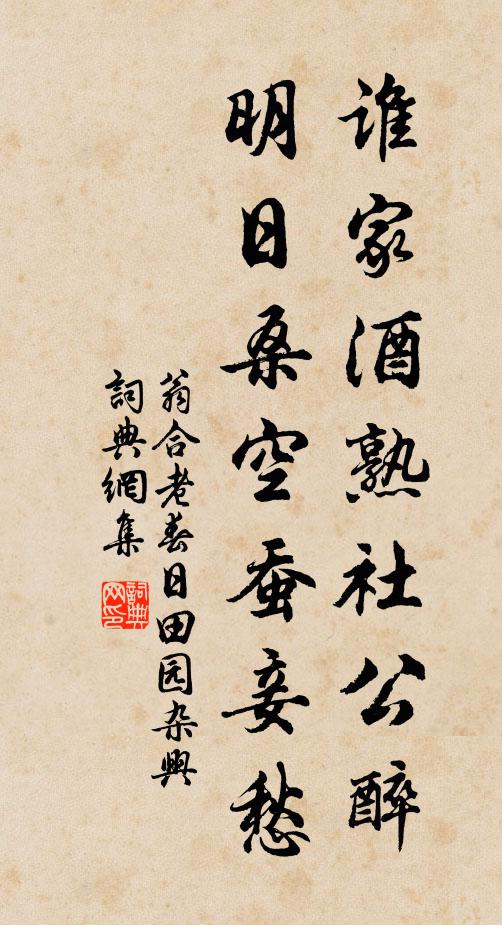 谁家酒熟社公醉
明日桑空蚕妾愁
翁合老春日田园杂興
詞典網集
詞典网印